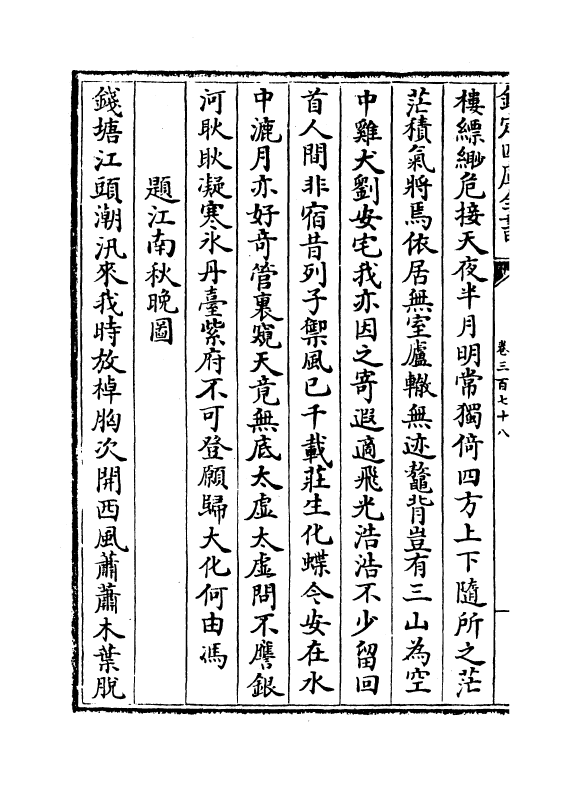 欽定四庫全書
卷三百七十八
樓縹緲危接天夜半月明常獨倚四方上下隨所之茫
茫積氣將焉依居無室廬轍無迹鼇背豈有三山為空
中雞犬劉安宅我亦因之寄遐適飛光浩浩不少留回
首人間非宿昔列子禦風已千載莊生化蝶今安在水
中漉月亦好奇管裏窺天竟無底太虛太虛問不譍銀
河耿耿凝寒氷丹臺紫府不可登願歸大化何由馮
題江南秋晚圖
錢塘江頭潮汛來我時放棹胸次開西風蕭蕭木葉脫